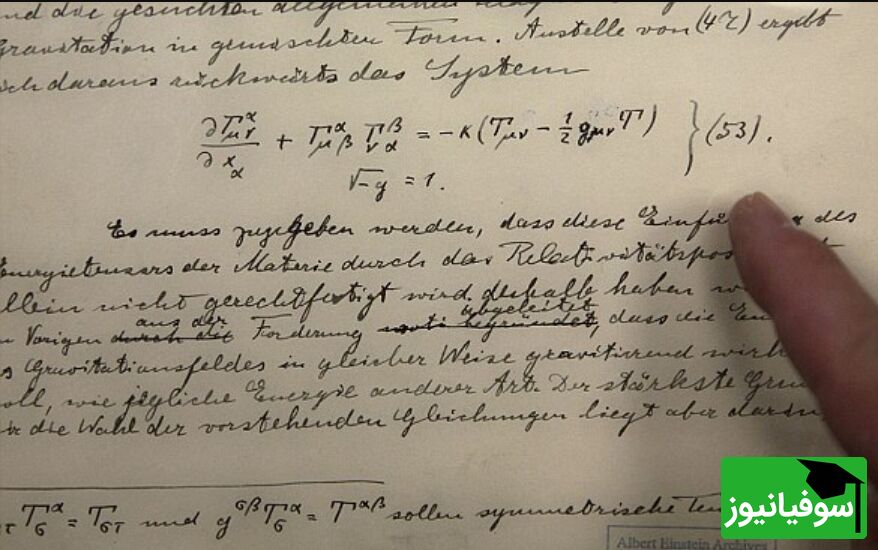 und die gesuchten allgemeinen
Gravitation in gemischter Form. Anstelle von (47) ergibt
sich daraus rückwärts das System
∂Γ^α_{μν}/∂x_α + Γ^α_{μβ} Γ^β_{να} = -κ(T_{μν} - 1/2 g_{μν} T) } (53).
√-g = 1.
Es muss zugegeben werden, dass diese Einfü des
Energietensors der Materie durch das Relativitätspos
allein nicht gerechtfertigt wird, deshalb haben
Vorigen durch die aus der Forderung abgeleitet, dass die
Gravitationsfeldes in gleicher Weise gravitierend
soll, wie jegliche Energie anderer Art. Der stärkste
die Wahl der vorstehenden Gleichungen liegt aber darin,
T^α_σ = T_{στ} und g^{σβ} T^α_σ = T^{αβ} sollen symmetrische
Albert Einstein Archives
سوفیانیوز